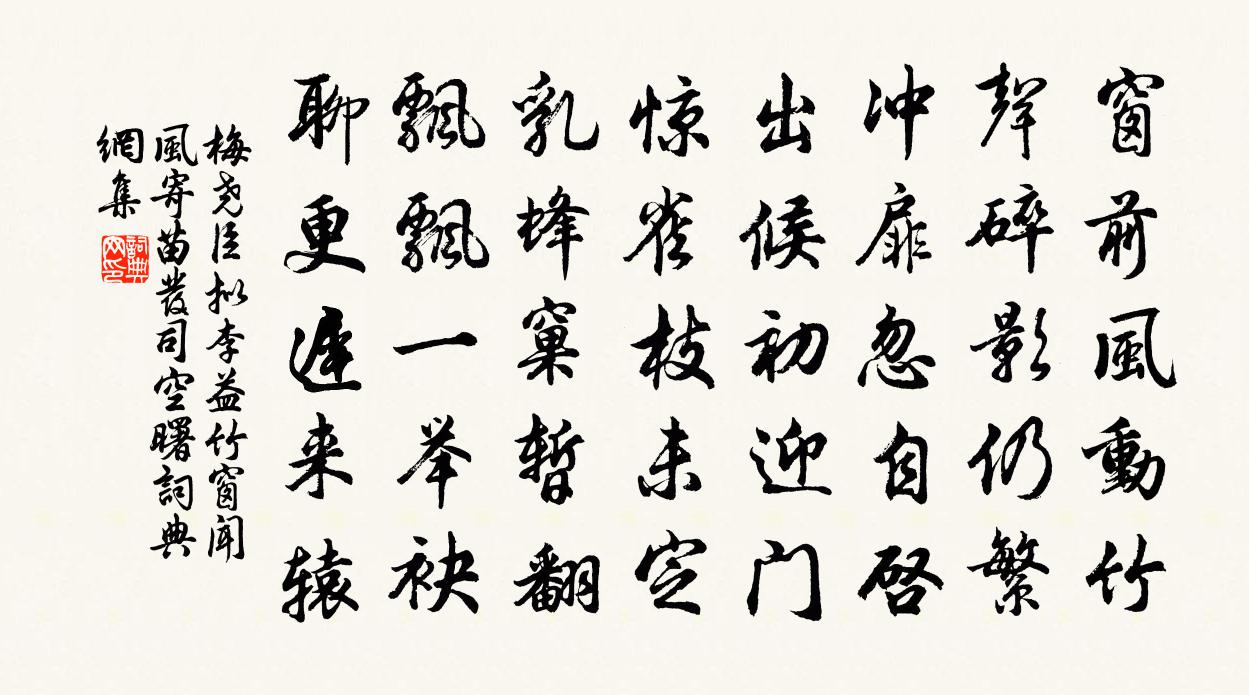 窗前風動竹
聲碎影仍繁
沖扉忽自啓
出候初迎门
惊雀枝未定
乳蜂窠暫翻
飄飄一举袂
聊更遲来辕
梅尧臣拟李益竹窗闻
風寄苗發司空曙詞典
網集
詞典网印